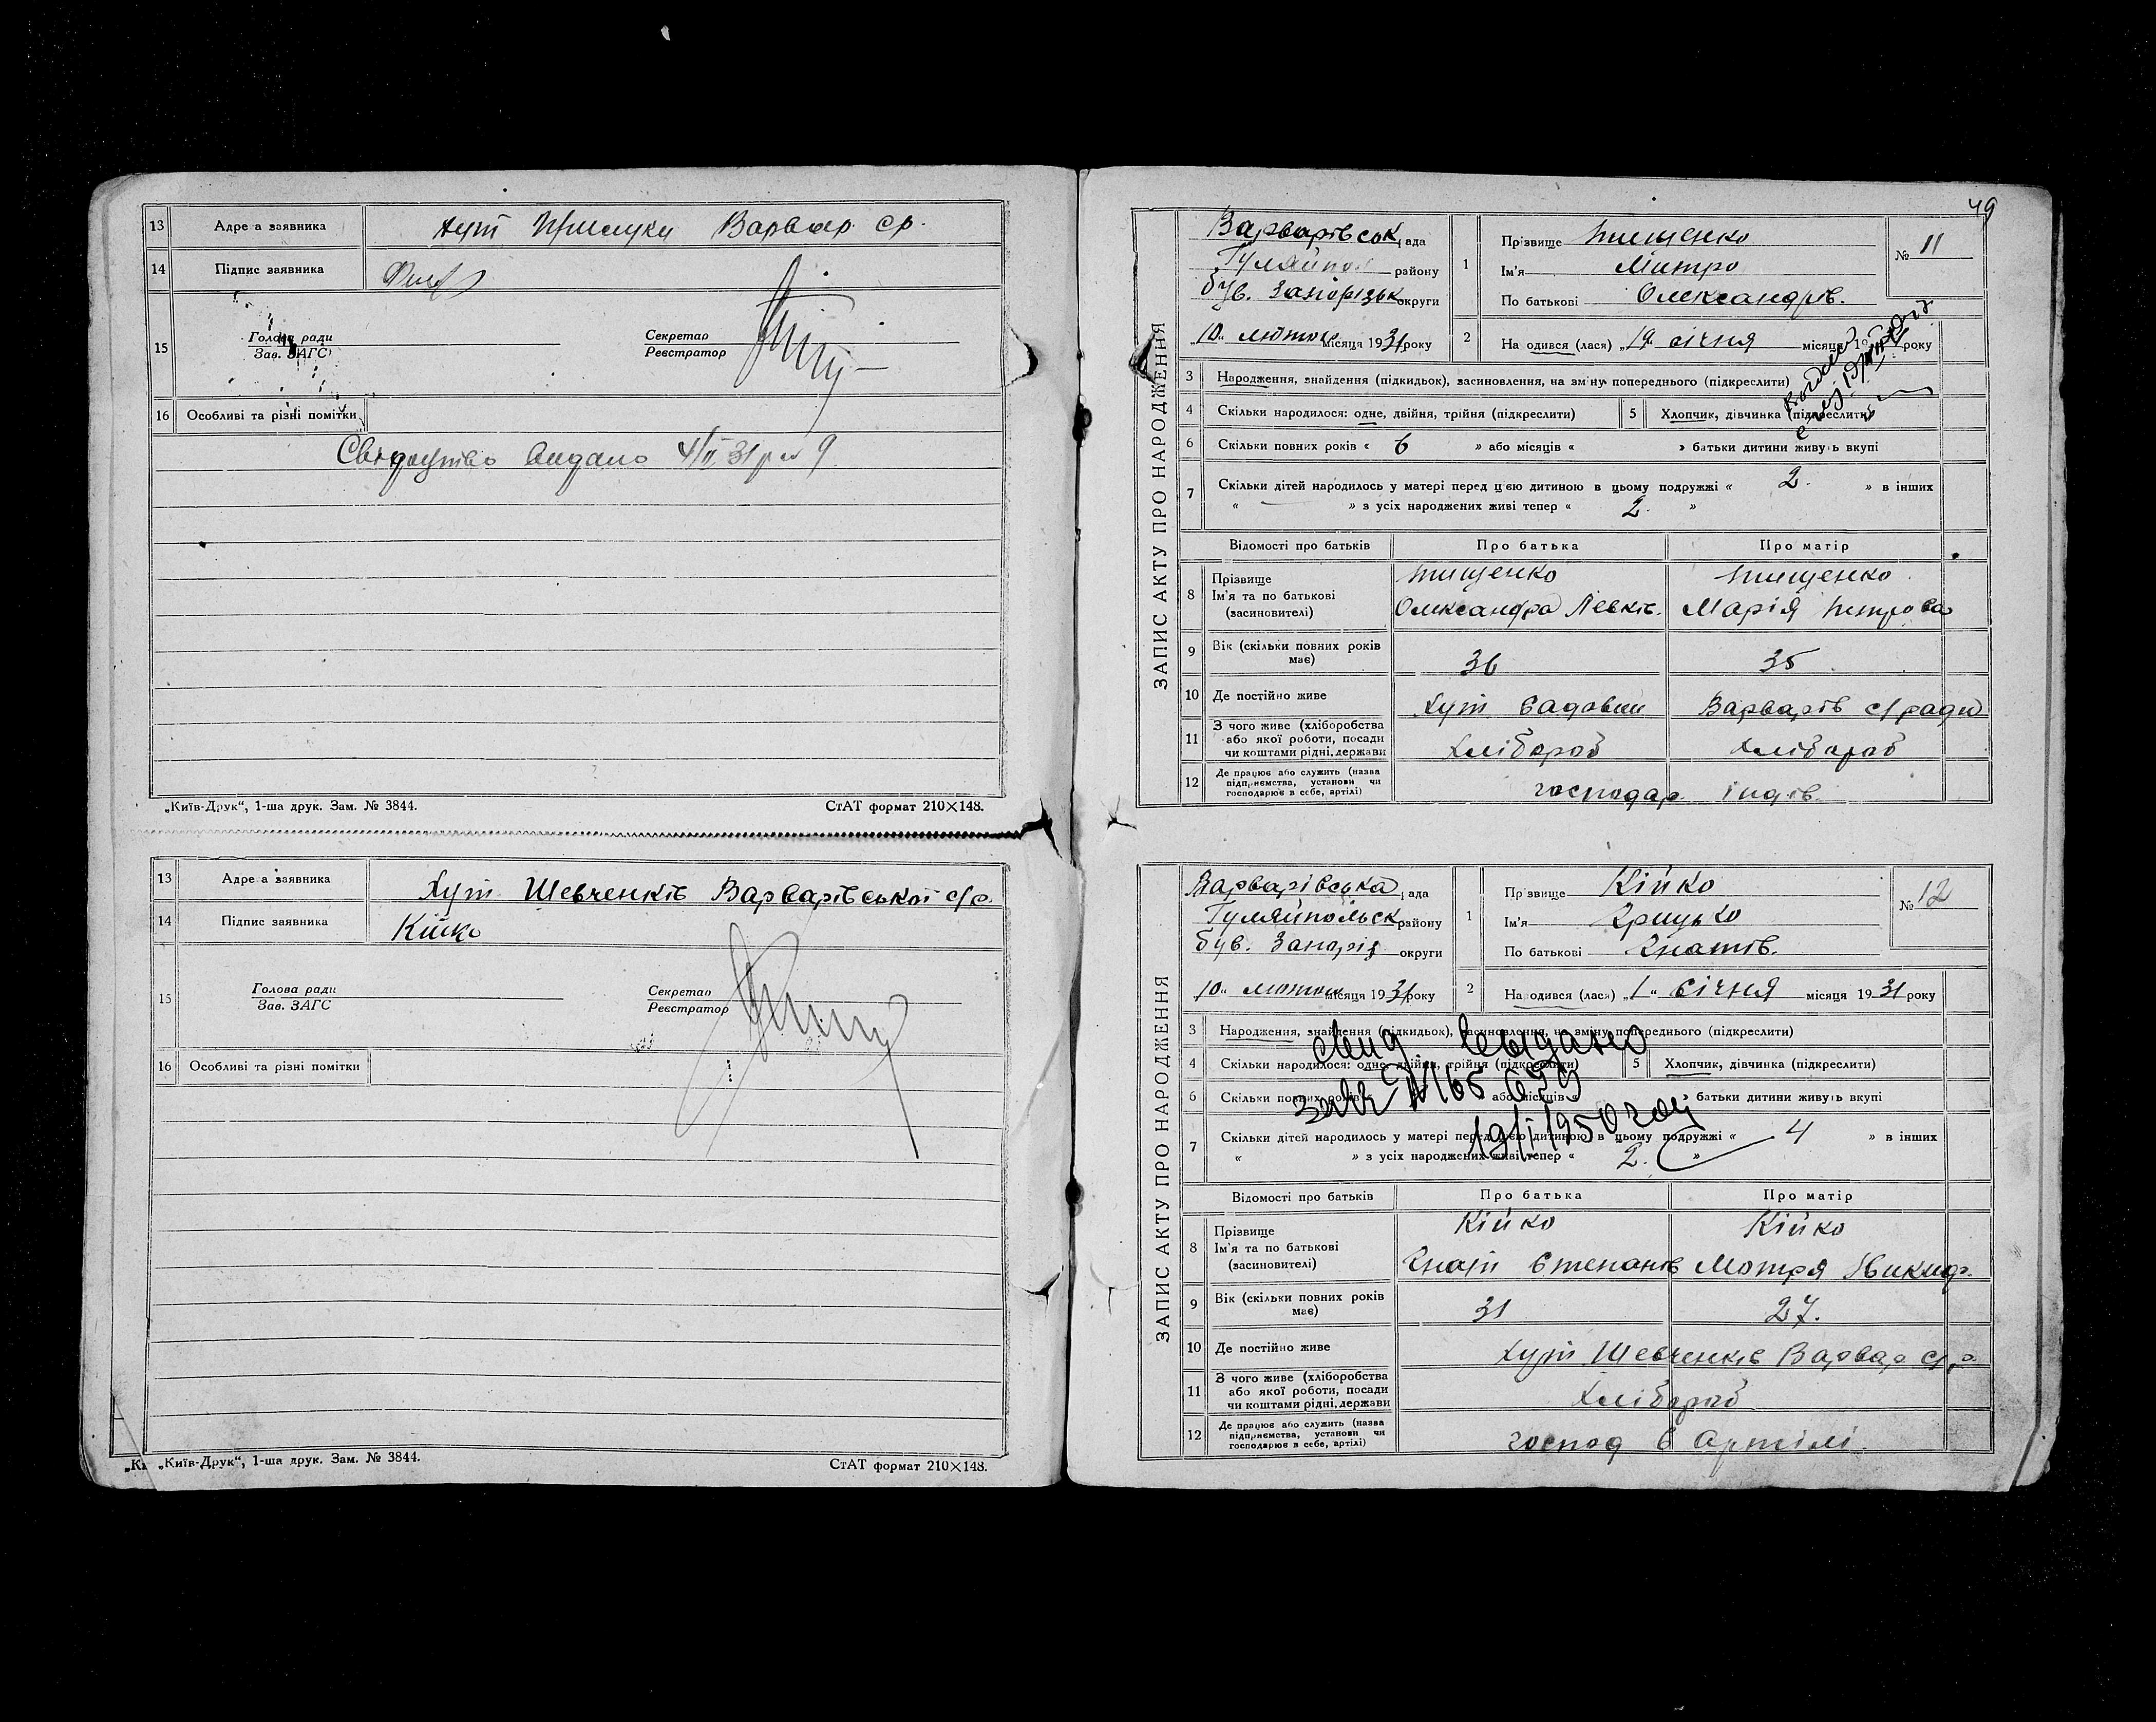 13 Адре а заявника Хут Прилуки Варвар ср.
14 Підпис заявника
15 Голова ради Секретар
Зав. ЗАГС Реєстратор
16 Особливі та різні помітки
Свідоцтво видано 4/II 31р № 9
„Київ-Друк“, 1-ша друк. Зам. № 3844. СтАТ формат 210×148.
13 Адре а заявника Хут Шевченків Варварівської с/р.
14 Підпис заявника Кійко
15 Голова ради Секретар
Зав. ЗАГС Реєстратор
16 Особливі та різні помітки
„Київ-Друк“, 1-ша друк. Зам. № 3844. СтАТ формат 210×148.
49
ЗАПИС АКТУ ПРО НАРОДЖЕННЯ
Варварівськ рада
Гуляйпол району
був. Запорізьк округи
10 лютого місяця 1931 року
1 Прізвище Тищенко № 11
Ім'я Митро
По батькові Олександрів.
2 На одився (лася) „19“ січня місяця 19 року
3 Народження, знайдення (підкидьок), засиновлення, на зміну попереднього (підкреслити)
4 Скільки народилося: одне, двійня, трійня (підкреслити) 5 Хлопчик, дівчинка (підкреслити)
6 Скільки повних років « 6 » або місяців « » батьки дитини живуть вкупі
7 Скільки дітей народилось у матері перед цією дитиною в цьому подружжі « 2. » в інших
« — » з усіх народжених живі тепер « 2. »
Відомості про батьків Про батька Про матір
8 Прізвище Тищенко Тищенко
Ім'я та по батькові Олександра Левків. Марія Петрова
(засиновителі)
9 Вік (скільки повних років має) 36 35
10 Де постійно живе Хут Садовий Варварів с/ради
11 З чого живе (хліборобства або якої роботи, посади чи коштами рідні, держави Хлібороб Хлібороб
12 Де працює або служить (назва підприємства, установи чи господарює в себе, артілі) господар індів.
ЗАПИС АКТУ ПРО НАРОДЖЕННЯ
Варварівська рада
Гуляйпольськ району
був. Запоріз округи
10 лютого місяця 1931 року
1 Пр звище Кійко № 12
Ім'я Грицько
По батькові Гнатів.
2 На одився (лася) „1“ січня місяця 1931 року
3 Народження, знайдення (підкидьок), засиновлення, на зміну попереднього (підкреслити)
4 Скільки народилося: одне, двійня, трійня (підкреслити) 5 Хлопчик, дівчинка (підкреслити)
6 Скільки повних років « або місяців « » батьки дитини живуть вкупі
выдано
№ 165 679
19/I 1950 год
7 Скільки дітей народилось у матері перед цією дитиною в цьому подружжі « 4 » в інших
« » з усіх народжених живі тепер « 2. »
Відомості про батьків Про батька Про матір
8 Прізвище Кійко Кійко
Ім'я та по батькові Гнат Степанів Мотря Никиф.
(засиновителі)
9 Вік (скільки повних років має) 31 27.
10 Де постійно живе Хут Шевченків Варвар с/р
11 З чого живе (хліборобства або якої роботи, посади чи коштами рідні, держави Хлібороб
12 Де працює або служить (назва підприємства, установи чи господарює в себе, артілі) господ в Артілі.